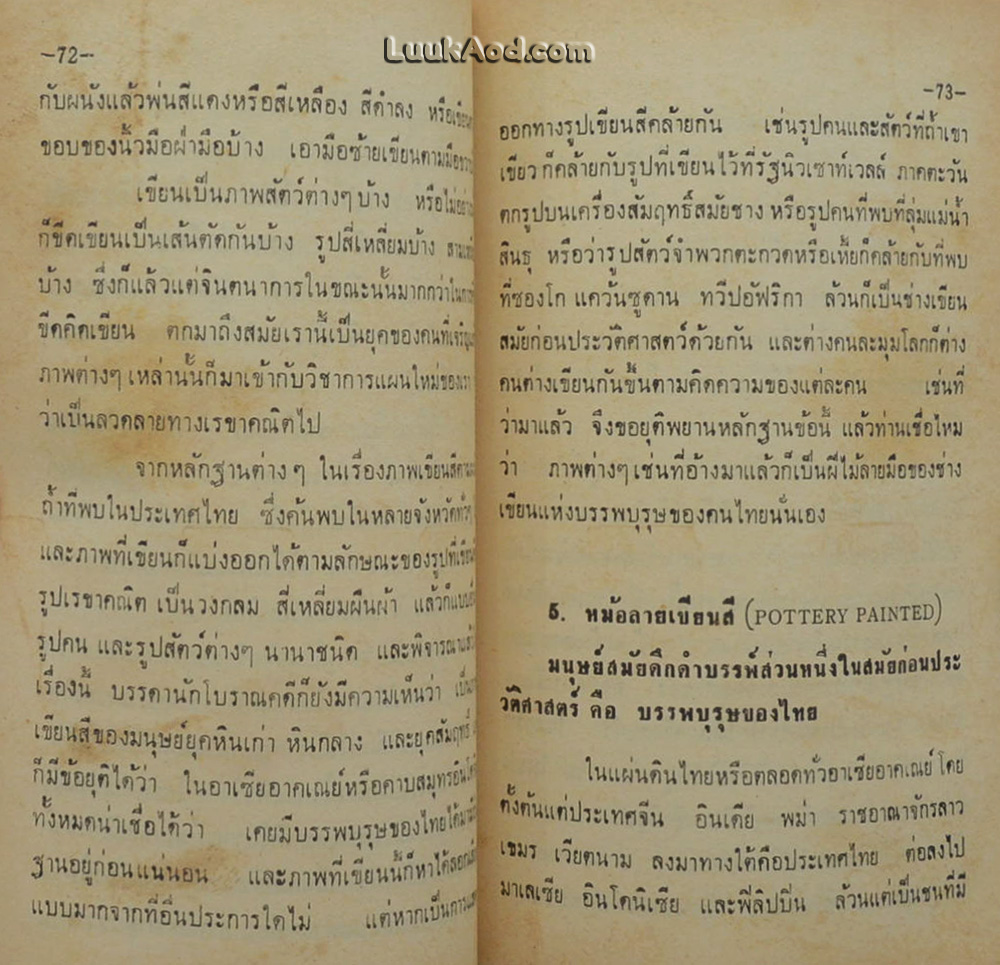 LuukAod.com
–72–
กับผนังแล้วพ่นสีแดงหรือสีเหลือง สีดำลง หรือเขียน
ขอบของนิ้วมือฝ่ามือบ้าง เอามือซ้ายเขียนตามมือขวา
เขียนเป็นภาพสัตว์ต่างๆ บ้าง หรือไม่
ก็ขีดเขียนเป็นเส้นตัดกันบ้าง รูปสี่เหลี่ยมบ้าง
บ้าง ซึ่งก็แล้วแต่จินตนาการในขณะนั้นมากกว่า
ขีดคิดเขียน ตกมาถึงสมัยเรานี้เป็นยุคของคนที่เจริญ
ภาพต่างๆ เหล่านั้นก็มาเข้ากับวิชาการแผนใหม่ของเรา
ว่าเป็นลวดลายทางเรขาคณิตไป
จากหลักฐานต่าง ๆ ในเรื่องภาพเขียนสี
ถ้ำที่พบในประเทศไทย ซึ่งค้นพบในหลายจังหวัด
และภาพที่เขียนก็แบ่งออกได้ตามลักษณะของรูปที่เขียน
รูปเรขาคณิต เป็นวงกลม สี่เหลี่ยมผืนผ้า แล้วก็
รูปคน และรูปสัตว์ต่างๆ นานาชนิด และพิจารณา
เรื่องนี้ บรรดานักโบราณคดีก็ยังมีความเห็นว่า
เขียนสีของมนุษย์ยุคหินเก่า หินกลาง และยุคสัมฤทธิ์
ก็มีข้อยุติได้ว่า ในอาเซียอาคเณย์หรือคาบสมุทร
ทั้งหมดน่าเชื่อได้ว่า เคยมีบรรพบุรุษของไทยได้
ฐานอยู่ก่อนแน่นอน และภาพที่เขียนนี้ก็หาได้
แบบมากจากที่อื่นประการใดไม่ แต่หากเป็นการ
–73–
ออกทางรูปเขียนสีคล้ายกัน เช่นรูปคนและสัตว์ที่ถ้ำเขา
เขียว ก็คล้ายกับรูปที่เขียนไว้ที่รัฐนิวเซาท์เวลล์ ภาคตะวัน
ตกรูปบนเครื่องสัมฤทธิ์สมัยชาง หรือรูปคนที่พบที่ลุ่มแม่น้ำ
สินธุ หรือว่ารูปสัตว์จำพวกตะกวดหรือเหี้ยก็คล้ายกับที่พบ
ที่ซองโก แคว้นซูดาน ทวีปอัฟริกา ล้วนก็เป็นช่างเขียน
สมัยก่อนประวัติศาสตร์ด้วยกัน และต่างคนละมุมโลกก็ต่าง
คนต่างเขียนกันขึ้นตามคิดความของแต่ละคน เช่นที่
ว่ามาแล้ว จึงขอยุติพยานหลักฐานข้อนี้ แล้วท่านเชื่อไหม
ว่า ภาพต่างๆ เช่นที่อ้างมาแล้วก็เป็นผีไม้ลายมือของช่าง
เขียนแห่งบรรพบุรุษของคนไทยนั่นเอง
5. หม้อลายเขียนสี (POTTERY PAINTED)
มนุษย์สมัยดึกดำบรรพ์ส่วนหนึ่งในสมัยก่อนประ
วัติศาสตร์ คือ บรรพบุรุษของไทย
ในแผ่นดินไทยหรือตลอดทั่วอาเซียอาคเณย์ โดย
ตั้งต้นแต่ประเทศจีน อินเดีย พม่า ราชอาณาจักรลาว
เขมร เวียตนาม ลงมาทางใต้คือประเทศไทย ต่อลงไป
มาเลเซีย อินโดนิเซีย และฟิลิปปิ่น ล้วนแต่เป็นชนที่มี